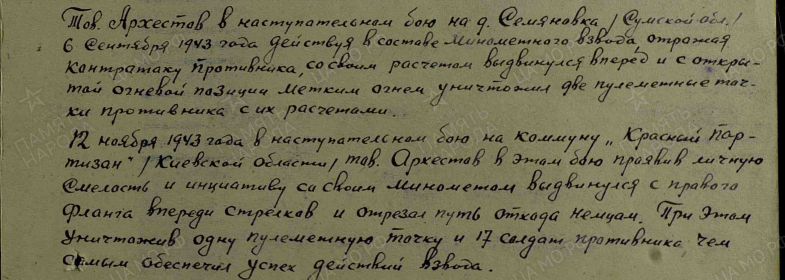 Тов. Архестов в наступательном бою на д. Семяновка /Сумской обл./
6 сентября 1943 года действуя в составе минометного взвода, отражая
контратаку противника, со своим расчетом выдвинулся вперёд и с откры-
той огневой позиции метким огнем уничтожил две пулеметные точ-
ки противника с их расчетами.
12 ноября 1943 года в наступательном бою на коммуну „Красный Пар-
тизан" /Киевской области/ тов. Архестов в этом бою проявив личную
смелость и инициативу со своим минометом выдвинулся с правого
фланга впереди стрелков и отрезал путь отхода немцам. При этом
уничтожив одну пулеметную точку и 17 солдат противника, чем
самым обеспечил успех действий взвода.